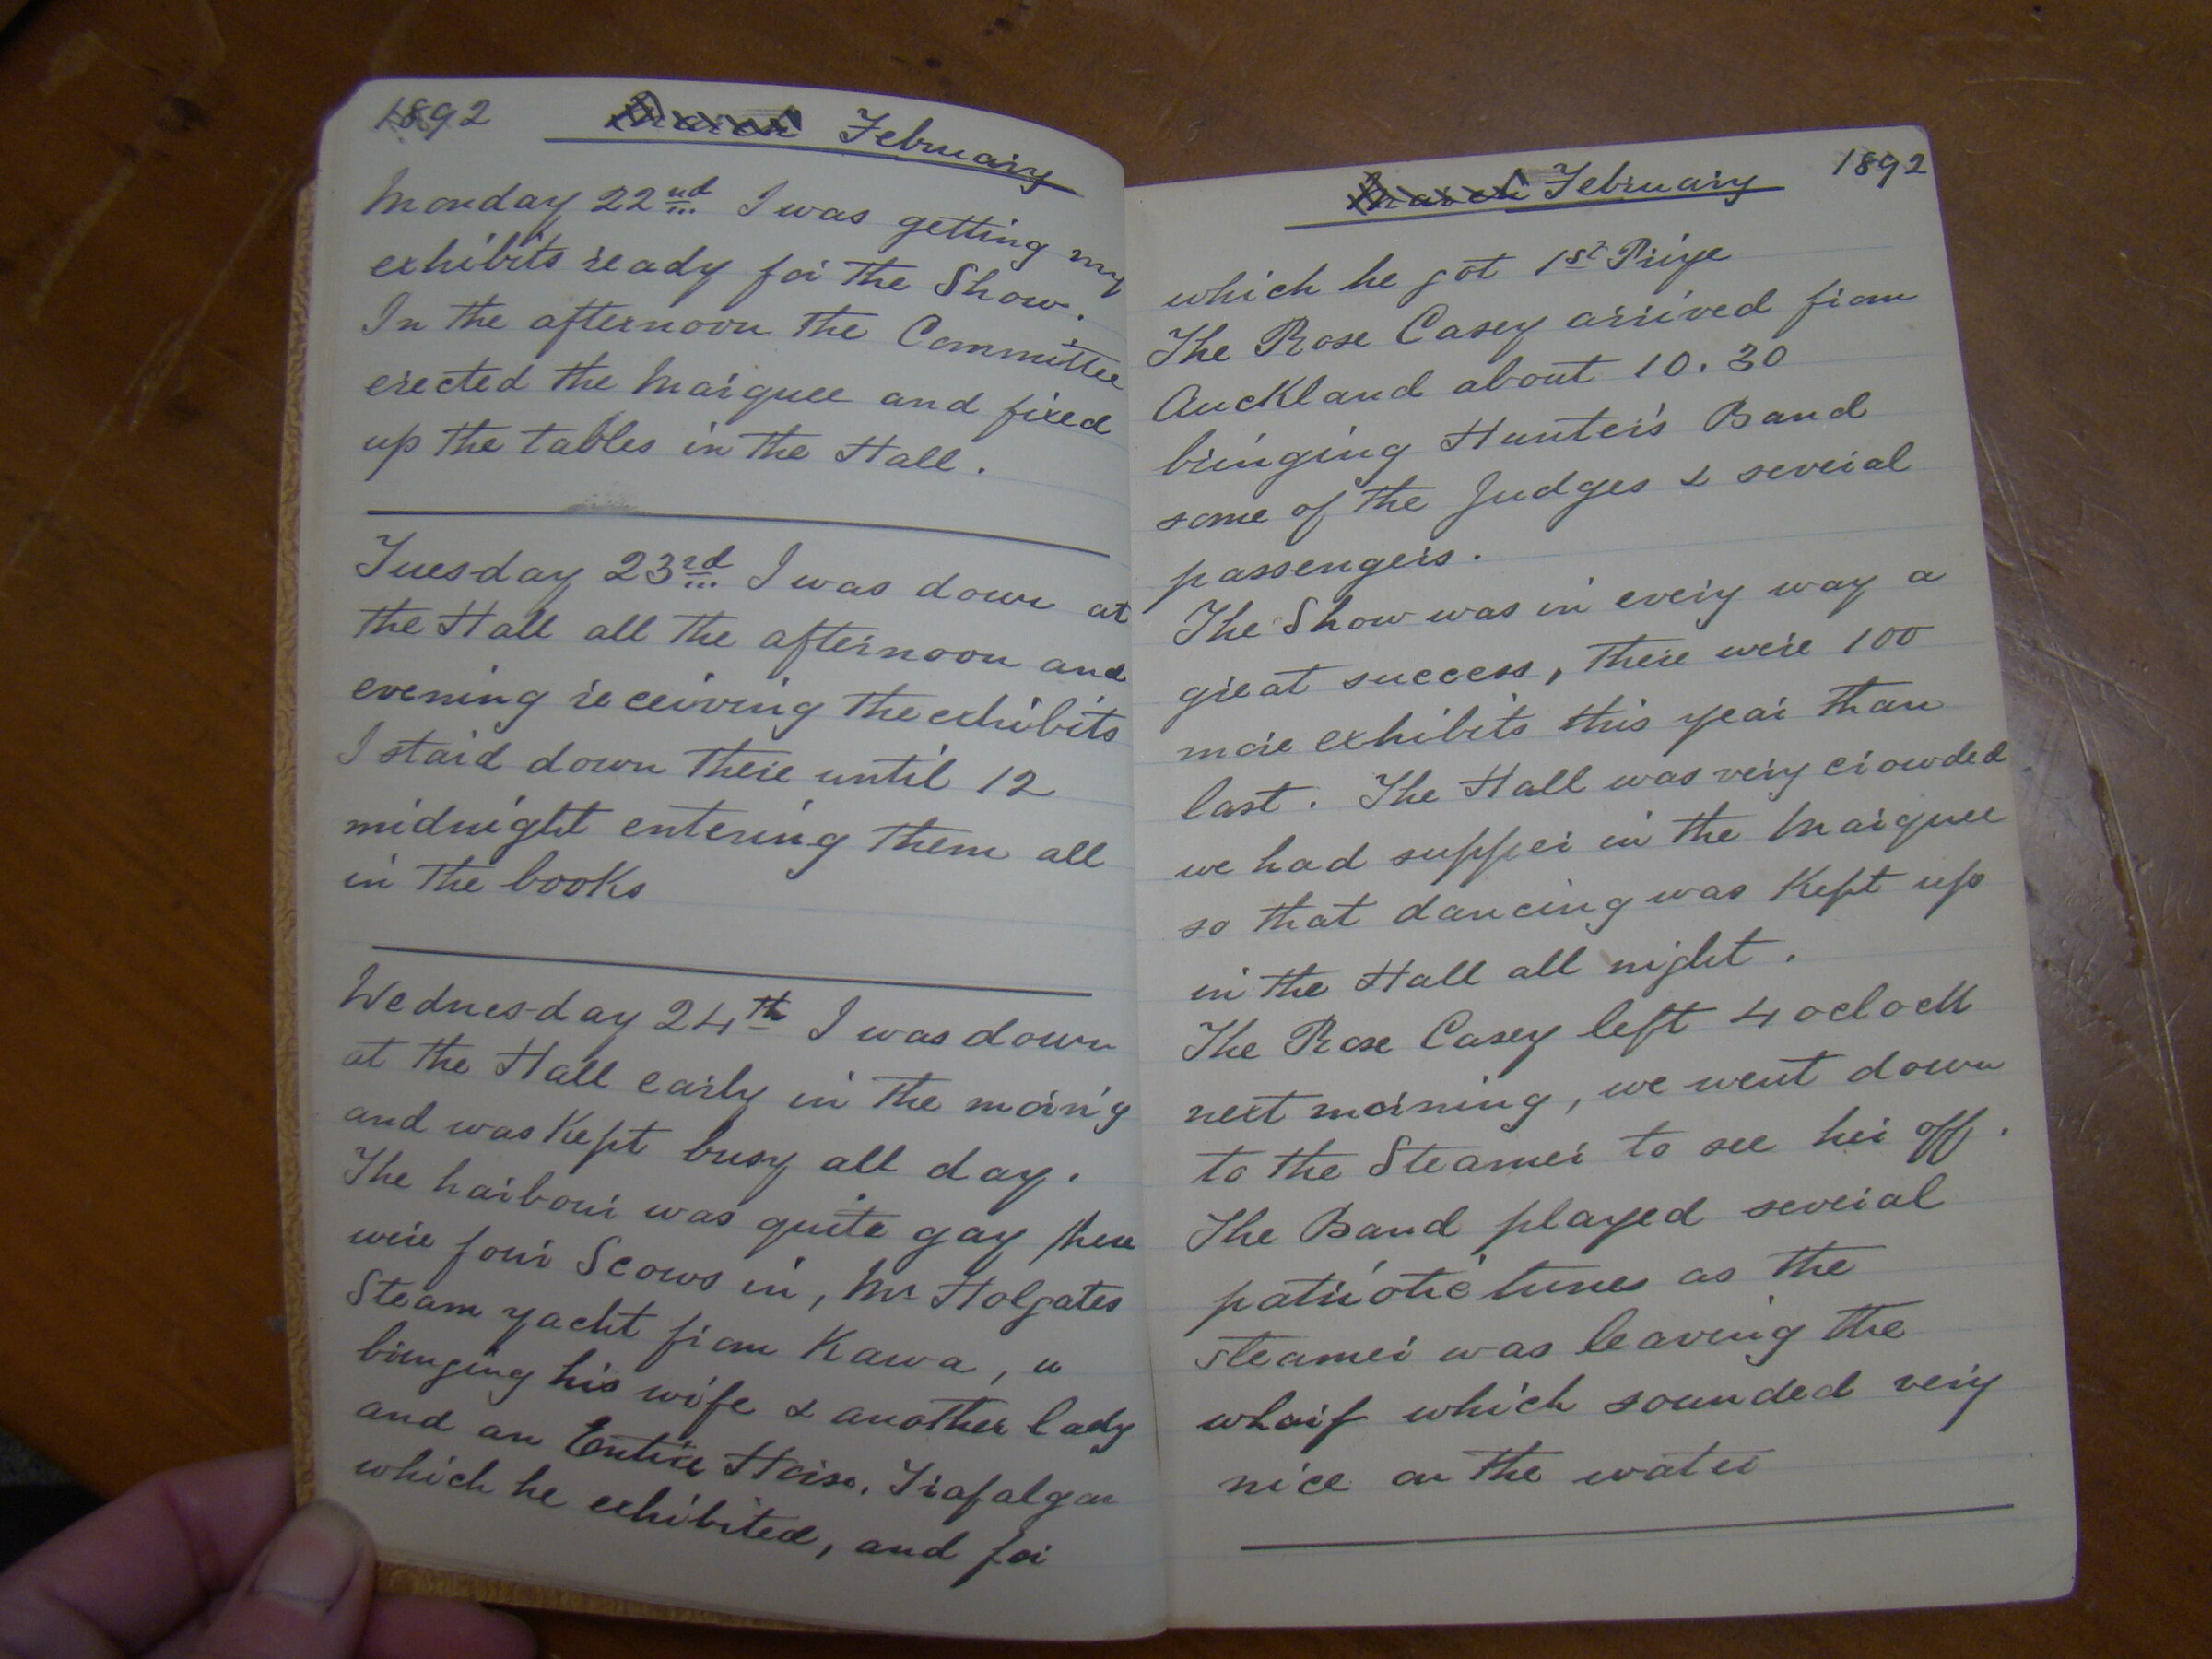 1892 March February
Monday 22nd I was getting my
exhibits ready for the Show.
In the afternoon the Committee
erected the Marquee and fixed
up the tables in the Hall.
Tuesday 23rd I was down at
the Hall all the afternoon and
evening receiving the exhibits
I staid down there until 12
midnight entering them all
in the books
Wednesday 24th I was down
at the Hall early in the morn'g
and was kept busy all day.
The harbour was quite gay there
were four Scows in, Mr Holgates
Steam yacht from Kawa,
bringing his wife & another lady
and an Entire Horse, Trafalgar
which he exhibited, and for
March February 1892
which he got 1st Prize
The Rose Casey arrived from
Auckland about 10.30
bringing Hunter's Band
some of the Judges & several
passengers.
The Show was in every way a
great success, there were 100
more exhibits this year than
last. The Hall was very crowded
we had supper in the Marquee
so that dancing was kept up
in the Hall all night.
The Rose Casey left 4 oclock
next morning, we went down
to the Steamer to see her off.
The Band played several
patriotic tunes as the
steamer was leaving the
wharf which sounded very
nice on the water